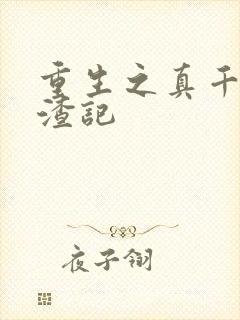 重生之真千
渣記
夜子翎